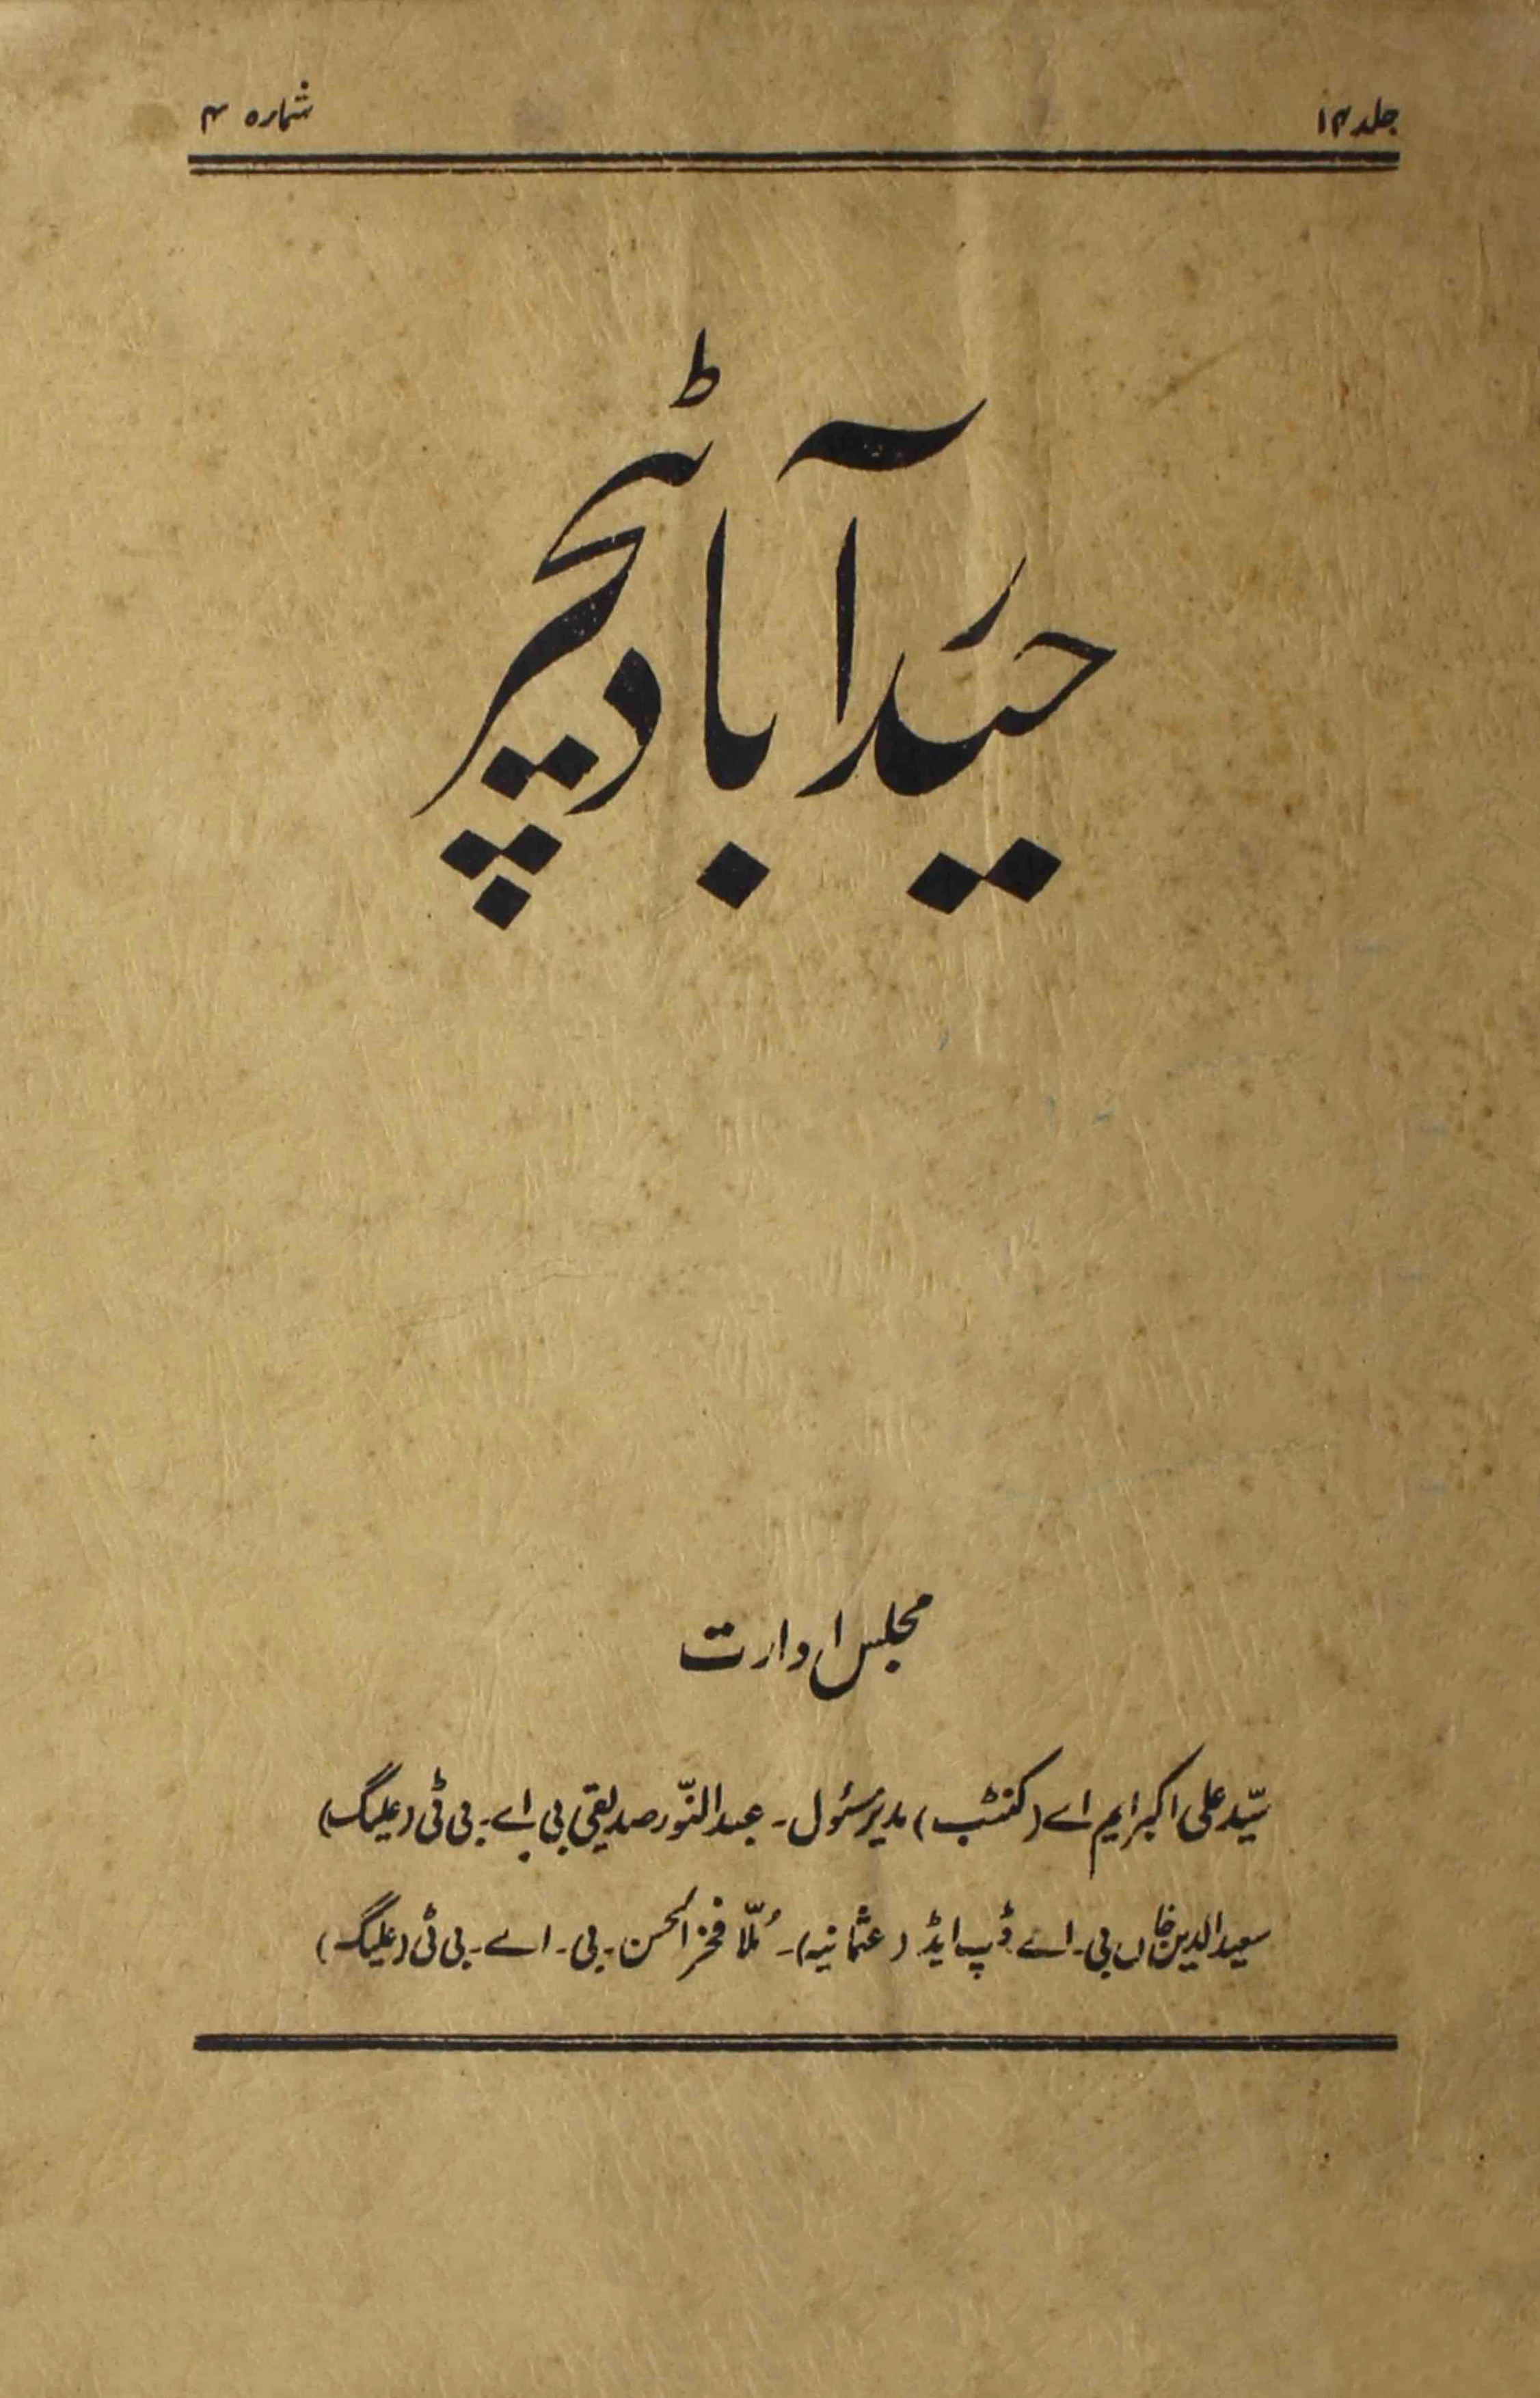 جلد ۱۴
شمارہ ۴
حیدرآباد ٹیچر
مجلس ادارت
سیّد علی اکبر ایم اے (کنٹب) مدیر مسئول ۔ عبدالنّور صدیقی بی اے ۔ بی ٹی (علیگ)
سعید الدین خاں بی ۔ اے ڈپ ایڈ (عثمانیہ) ۔ مُلّا فخر الحسن ۔ بی ۔ اے ۔ بی ٹی (علیگ)